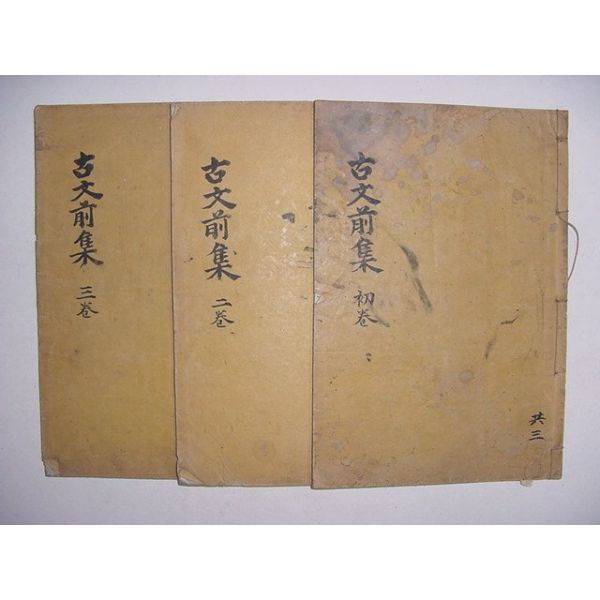 古文前集 初卷
共三
古文前集 二卷
古文前集 三卷